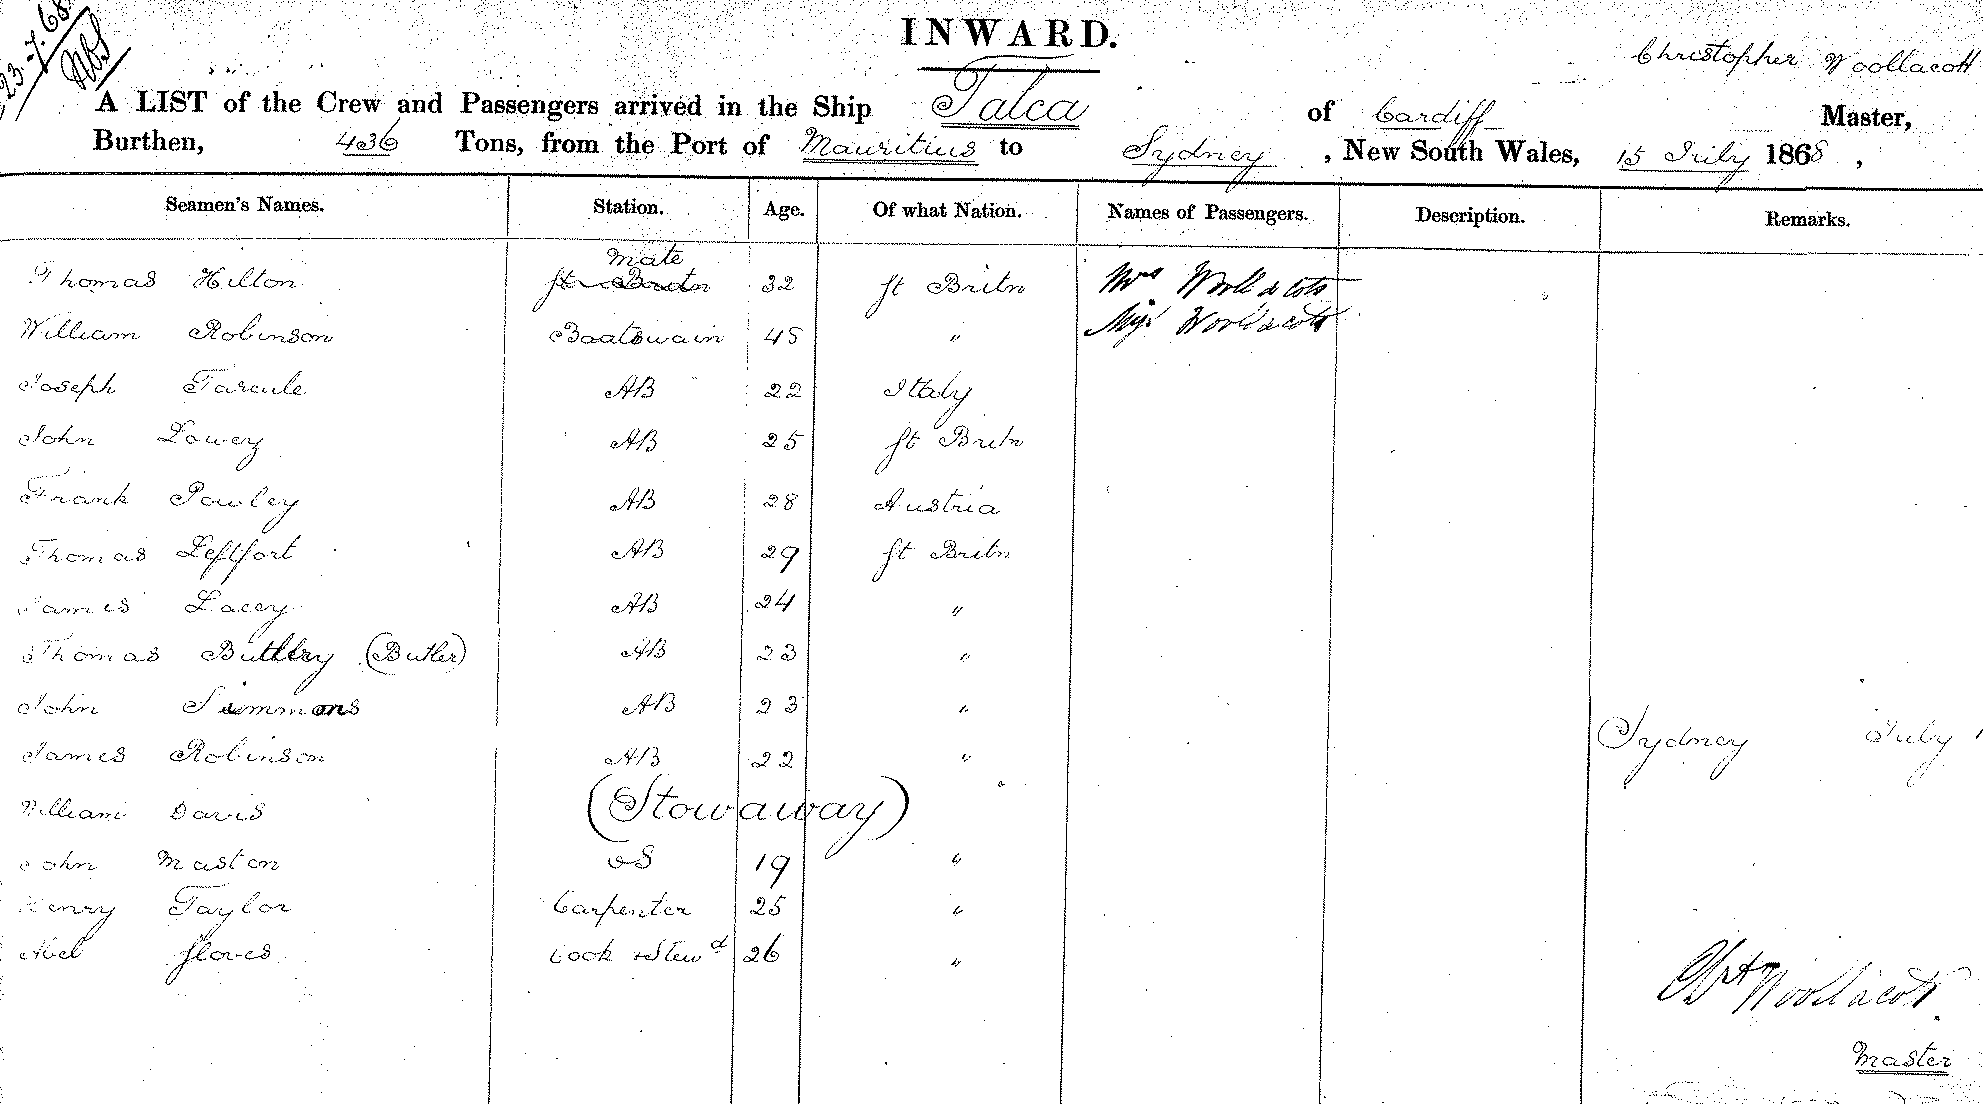 23.7.68
INWARD.
Christopher Woollacott
A LIST of the Crew and Passengers arrived in the Ship Talca of Cardiff Master,
Burthen, 436 Tons, from the Port of Mauritius to Sydney, New South Wales, 15 July 1868,
Seamen's Names. Station. Age. Of what Nation. Names of Passengers. Description. Remarks.
Thomas Hilton Mate 32 Gt Britn Mrs Woollacott
William Robinson Boatswain 45 " Miss Woollacott
Joseph Tarcule AB 22 Italy
John Lowey AB 25 Gt Britn
Frank Powley AB 28 Austria
Thomas Leftfort AB 29 Gt Britn
James Lacey AB 24 "
Thomas (Butler) AB 23 "
John Simmons AB 23 "
James Robinson AB 22 "
William Davis (Stowaway)
John Maston OS 19 "
Henry Taylor Carpenter 25 "
Abel Gloves Cook & Stewd 26 "
Sydney July
Chrt Woollacott
Master